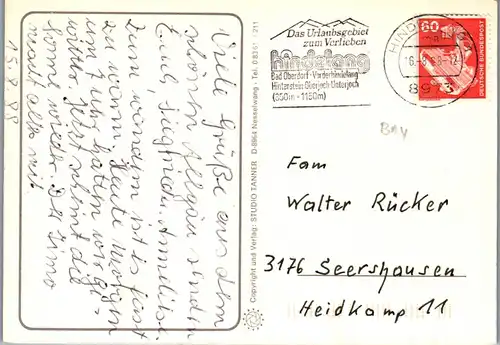 15.8.88
Viele Grüße aus dem
schönen Allgäu senden
E. und Siegfried. Annelise.
Zum wandern ist es fast
zu warm. Heute morgen
um 7 Uhr hatten wir Ge-
witter jetzt scheint die
Sonne wieder. Der Timo
macht alles mit
Copyright und Verlag: STUDIO TANNER D-8964 Nesselwang · Tel. 08361 / 211
Das Urlaubsgebiet
zum Verlieben
hindelang
Bad Oberdorf · Vorderhindelang
Hinterstein Oberjoch Unterjoch
(850m - 1180m)
HINDELANG
8973
80
DEUTSCHE BUNDESPOST
BAY
Fam
Walter Rücker
3176 Seershausen
Heidkamp 11